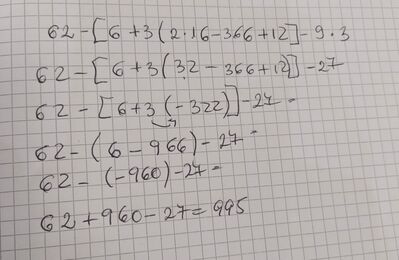 62-[6+3(2·16-366+12]-9·3
62-[6+3(32-366+12)]-27
62-[6+3(-322)]-27=
62-(6-966)-27=
62-(-960)-27=
62+960-27=995